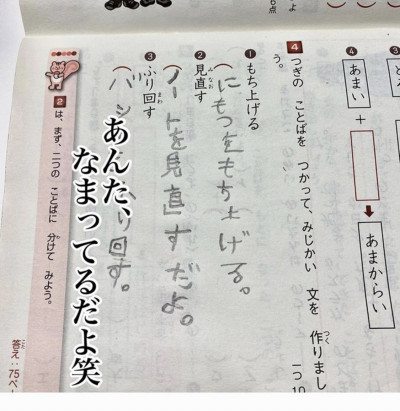 あまい
+
あまからい
4 つぎの ことばを つかって、みじかい 文を 作りまし
ょう。
一つ10
❶ もち上げる
にもつをもち上げる。
❷ 見直す
ノートを見直すだよ。
❸ ふり回す
り回す。
あんた、
なまってるだよ笑
2 は、まず、二つの ことばに 分けて みよう。
答え:75ペー
6点